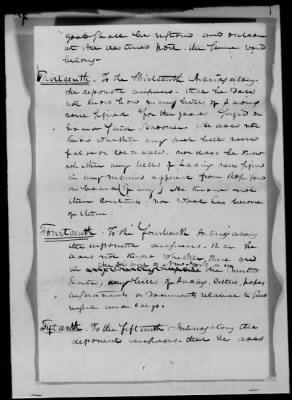 goods shall be
at the destined port. the same will
belong.
Thirteenth. To the thirteenth Interrogatory
the deponent answers. that he does
not know how many bills of Lading
were signed for the goods Laden on
board said Schooner. He does not
know whether any such bills were
false or colorable, nor does he know
whether any bills of Lading were signed
in any manner different from those
on board if any. He knows not
their contents, nor what has become
of them.
Fourteenth. To the fourteenth Interrogatory
the deponent answers. that he
does not know whether there are
in the District of New York
any bills of Lading, letters, papers
instruments or documents relative to said
vessel and cargo.
Fifteenth. To the fifteenth Interrogatory the
deponent answers. that he does